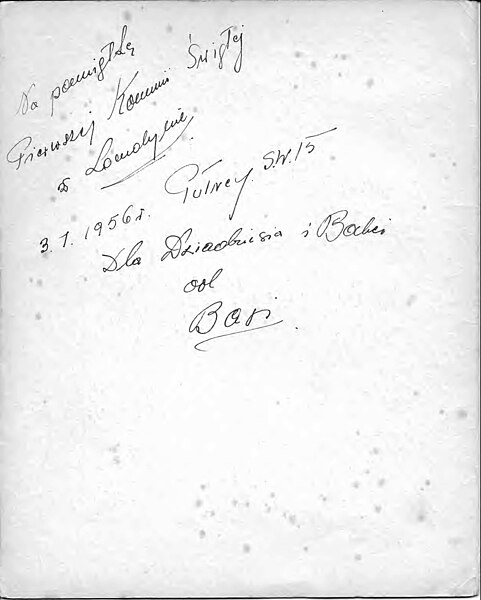 Na pamiątkę
Pierwszej Komunii Świętej
w Londynie
Putney S.W.15
3.1.1956r.
Dla Dziadziusia i Babci
od
Basi.